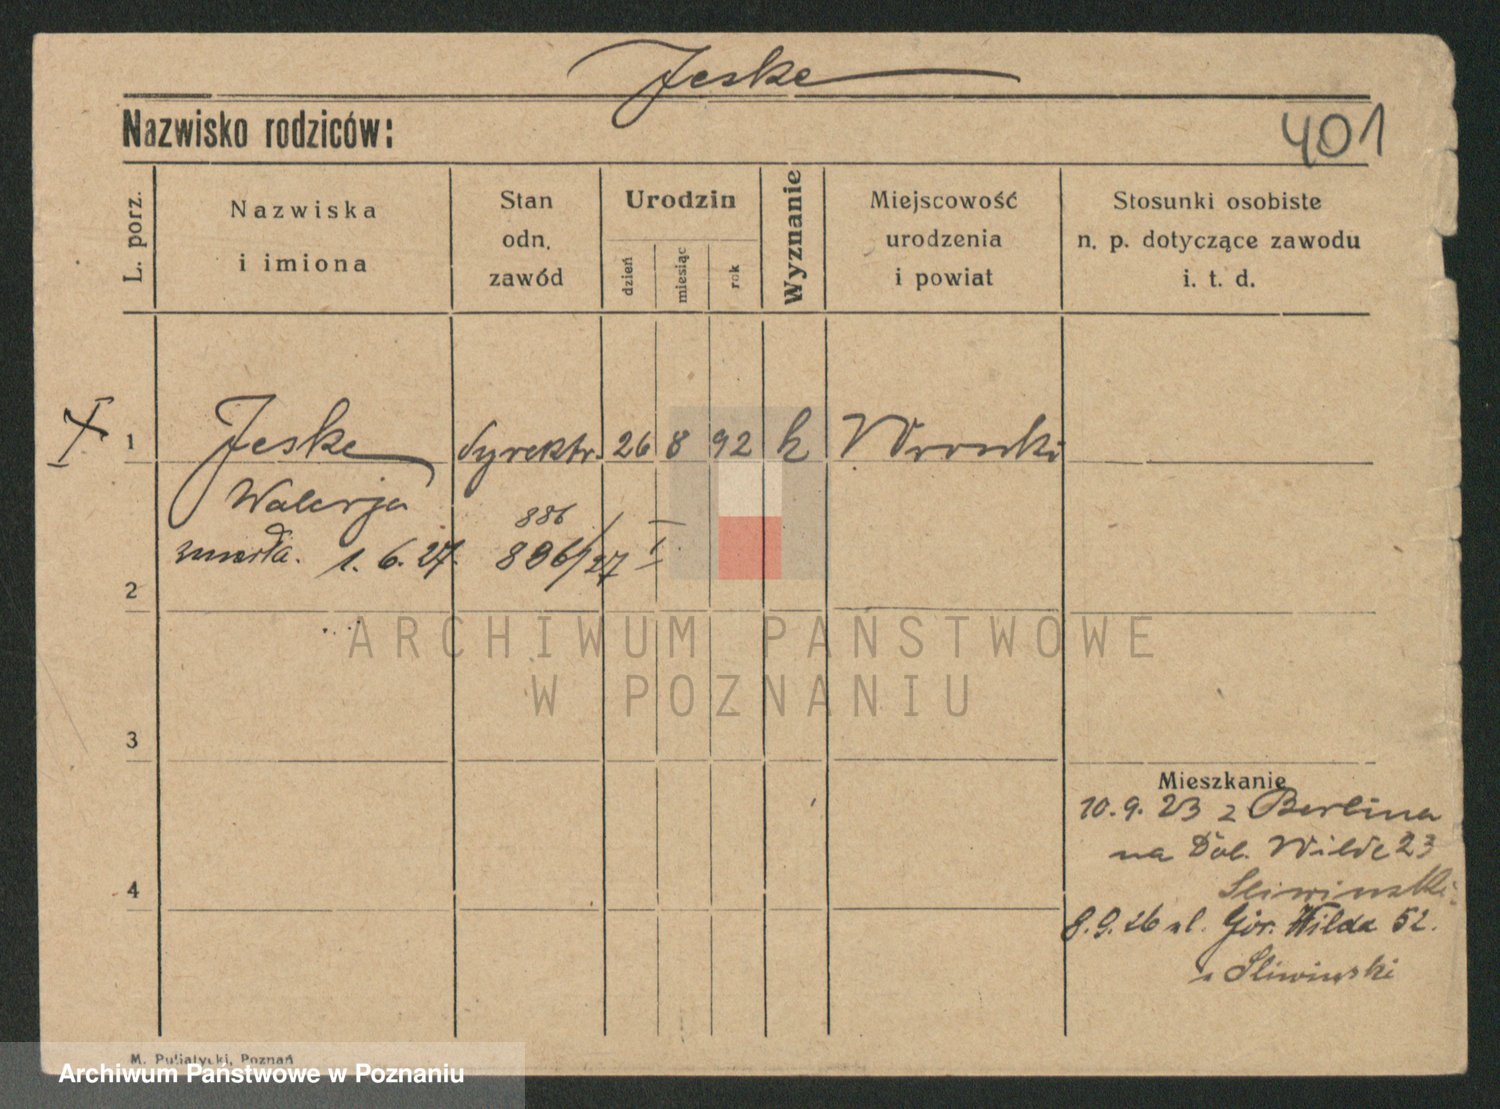 Jeske
Nazwisko rodziców:
401
L. porz.
Nazwiska
i imiona
Stan
odn.
zawód
Urodzin
dzień
miesiąc
rok
Wyznanie
Miejscowość
urodzenia
i powiat
Stosunki osobiste
n. p. dotyczące zawodu
i. t. d.
1 Jeske dyrektr. 26 8 92 k Wronki
Walerja
886
zmarła. 1. 6. 27. 886/27 I
2
3
4
Mieszkanie
10. 9. 23 z Berlina
na Dol. Wilde 23
Sliwinski
8.9.26 ul. Gór. Wilda 52.
Sliwinski
M. Pujiatycki, Poznań
ARCHIWUM PAŃSTWOWE
W POZNANIU
Archiwum Państwowe w Poznaniu